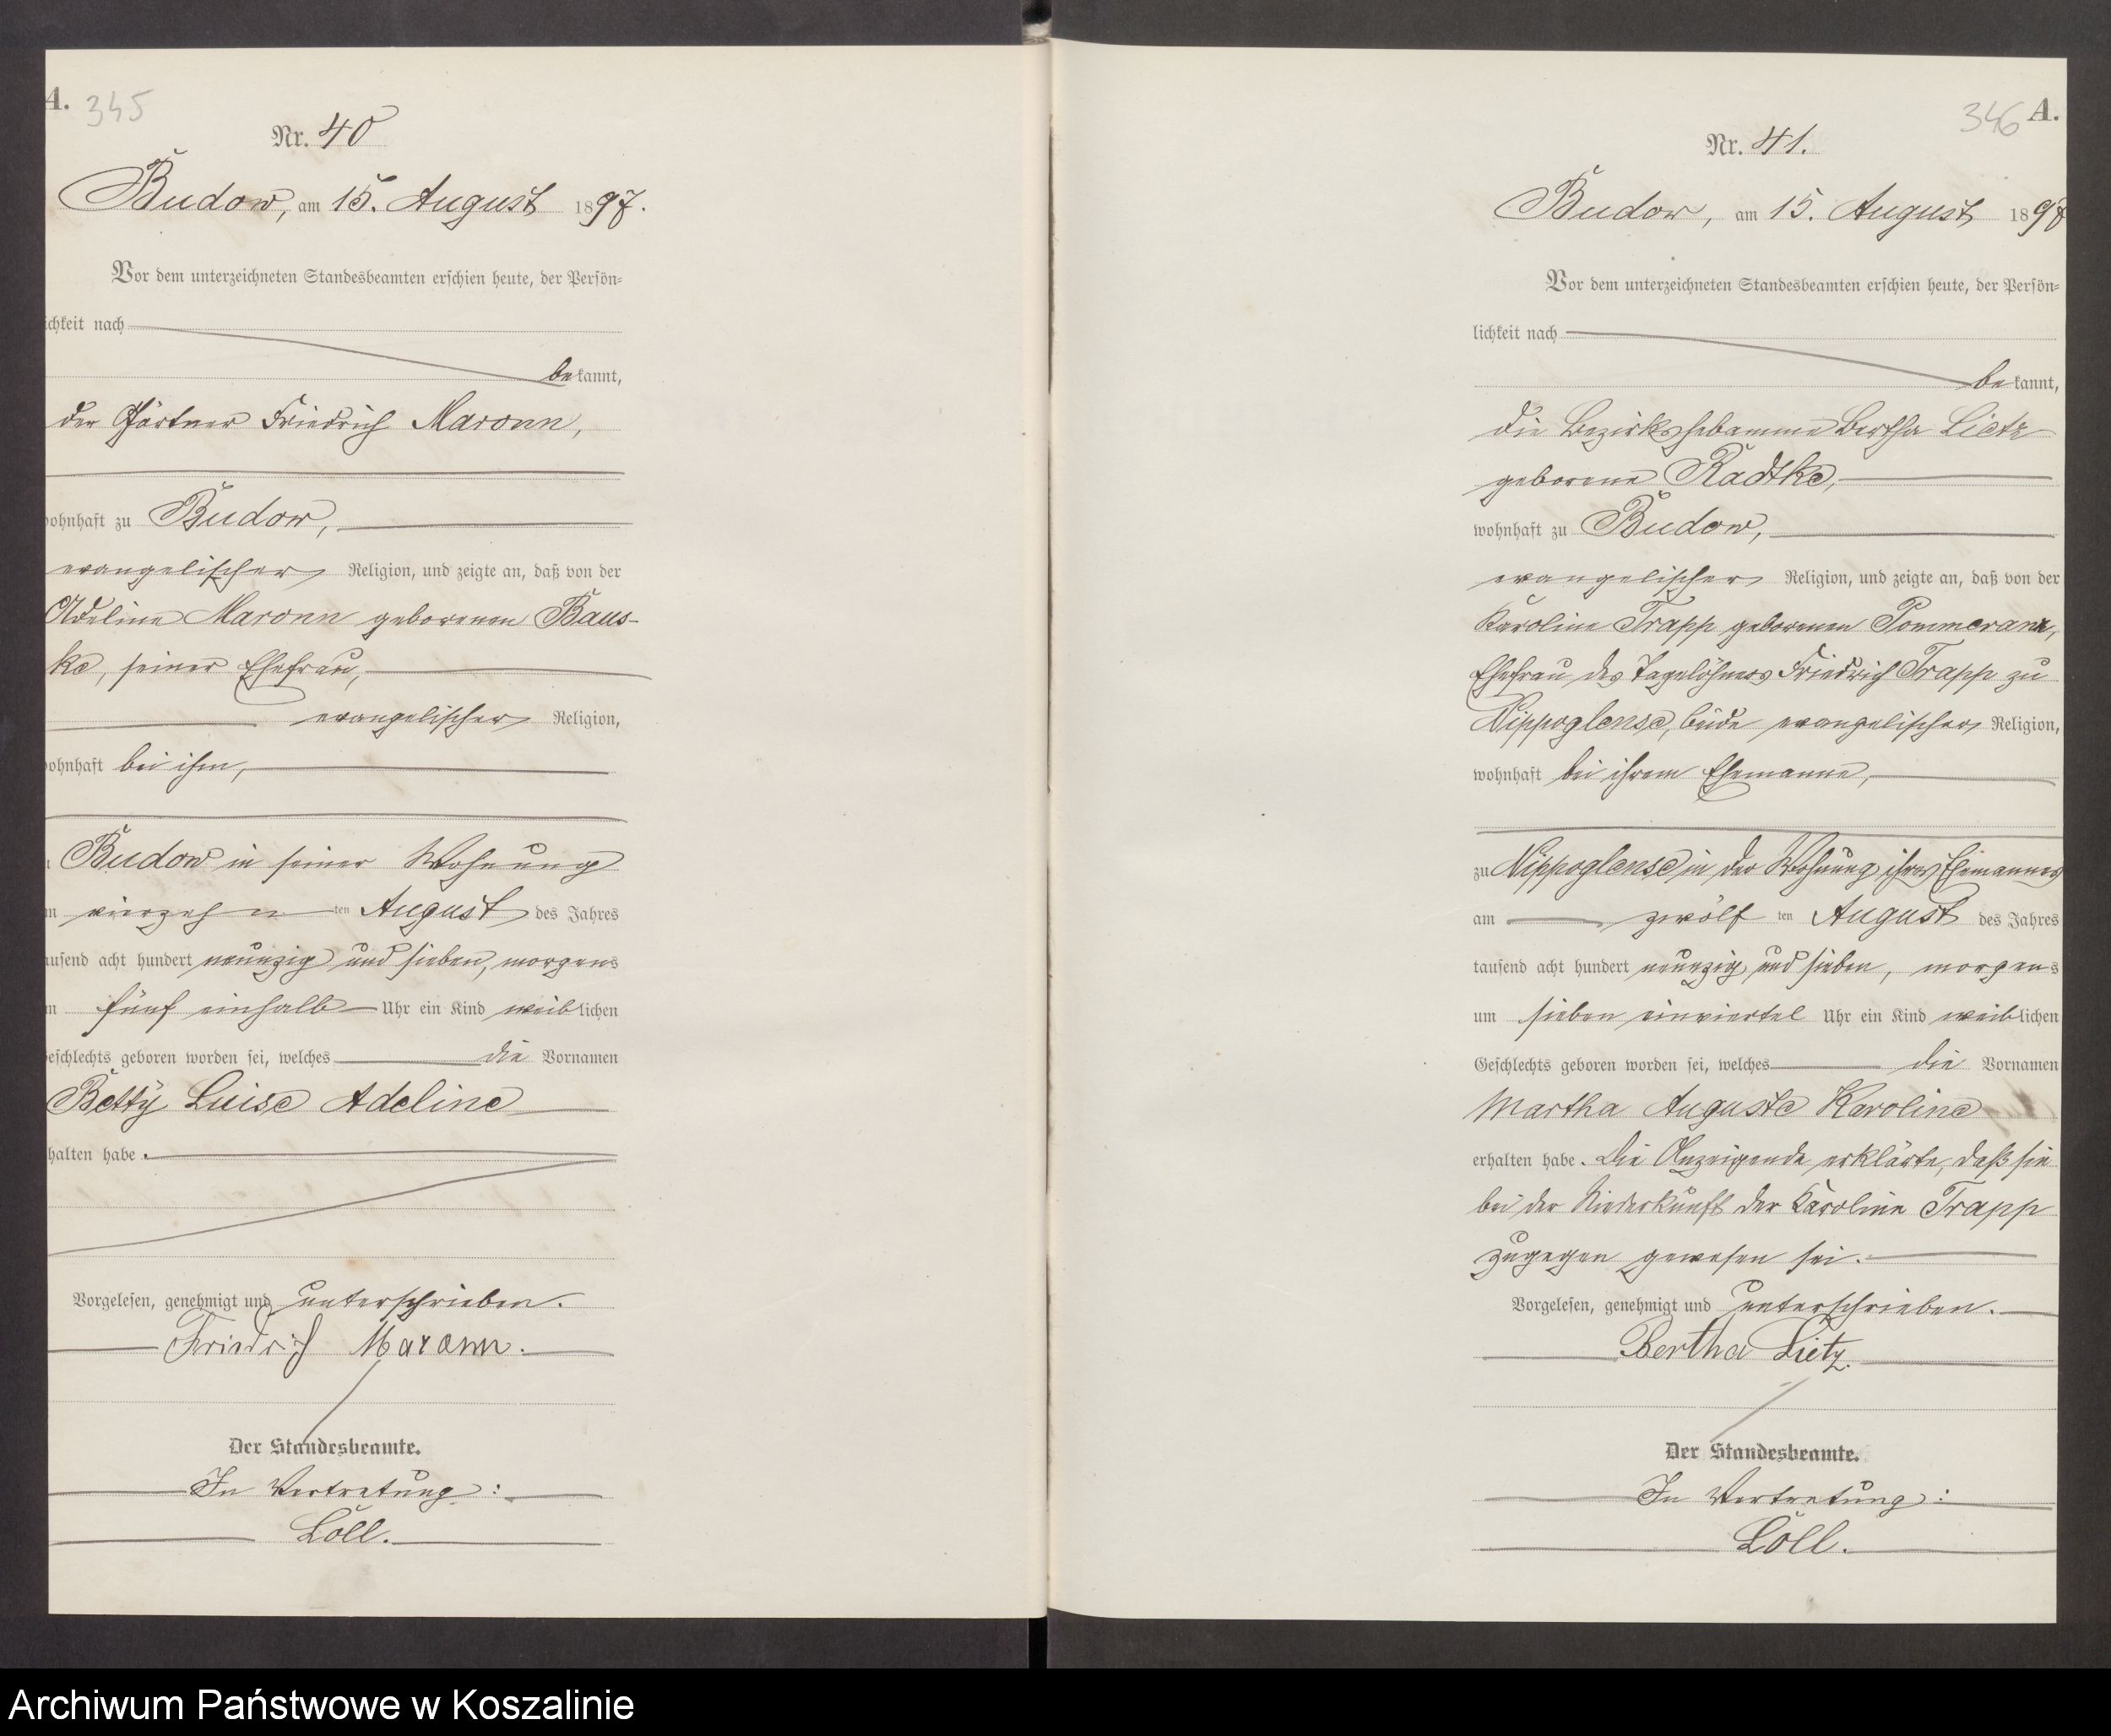 A. 345
Nr. 40
Budow, am 15. August 1897.
Vor dem unterzeichneten Standesbeamten erschien heute, der Persön-
ichkeit nach
bekannt,
der Gärtner Friedrich Maronn,
ohnhaft zu Budow,
evangelischer Religion, und zeigte an, daß von der
Adeline Maronn geborenen Baus-
ke, seiner Ehefrau,
evangelischer Religion,
ohnhaft bei ihm,
Budow in seiner Wohnung
m vierzehnten August des Jahres
ausend acht hundert neunzig und sieben, morgens
m fünf einhalb Uhr ein Kind weiblichen
eschlechts geboren worden sei, welches die Vornamen
Betty Luise Adeline
halten habe.
Vorgelesen, genehmigt und unterschrieben.
Friedrich Maronn.
Der Standesbeamte.
In Vertretung:
Löll.
346 A.
Nr. 41.
Budow, am 15. August 1897
Vor dem unterzeichneten Standesbeamten erschien heute, der Persön-
lichkeit nach
bekannt,
die Bezirkshebamme Bertha Lietz
geborene Radtke,
wohnhaft zu Budow,
evangelischer Religion, und zeigte an, daß von der
Karoline Trapp geborenen Pommeranz,
Ehefrau des Tagelöhners Friedrich Trapp zu
Nippoglense, beide evangelischer Religion,
wohnhaft bei ihrem Ehemanne,
zu Nippoglense in der Wohnung ihres Ehemannes
am zwölften August des Jahres
tausend acht hundert neunzig und sieben, morgens
um sieben einviertel Uhr ein Kind weiblichen
Geschlechts geboren worden sei, welches die Vornamen
Martha Auguste Karoline
erhalten habe. Die Anzeigende erklärte, daß sie
bei der Niederkunft der Karoline Trapp
zugegen gewesen sei.
Vorgelesen, genehmigt und unterschrieben.
Bertha Lietz.
Der Standesbeamte.
In Vertretung:
Löll.
Archiwum Państwowe w Koszalinie